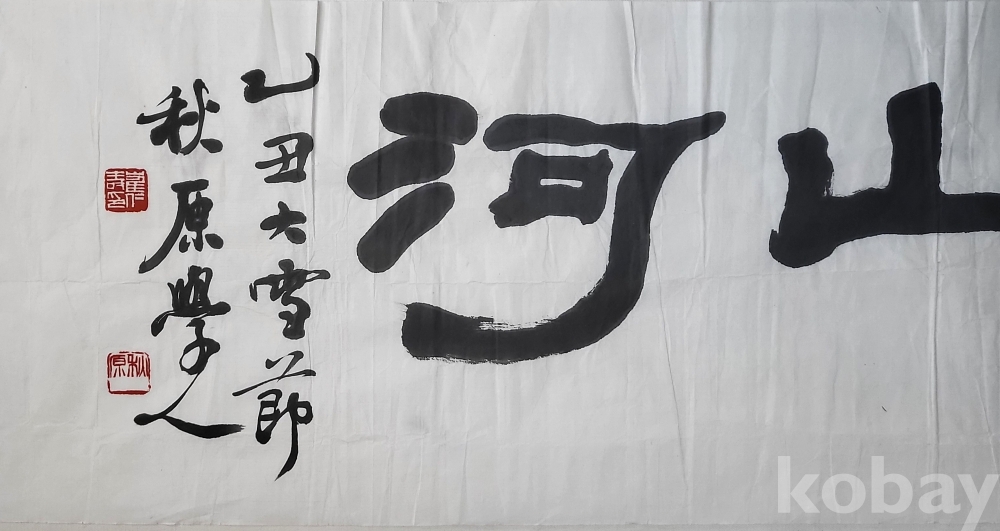 山河
乙丑大雪節
秋原學人
秋原
kobay